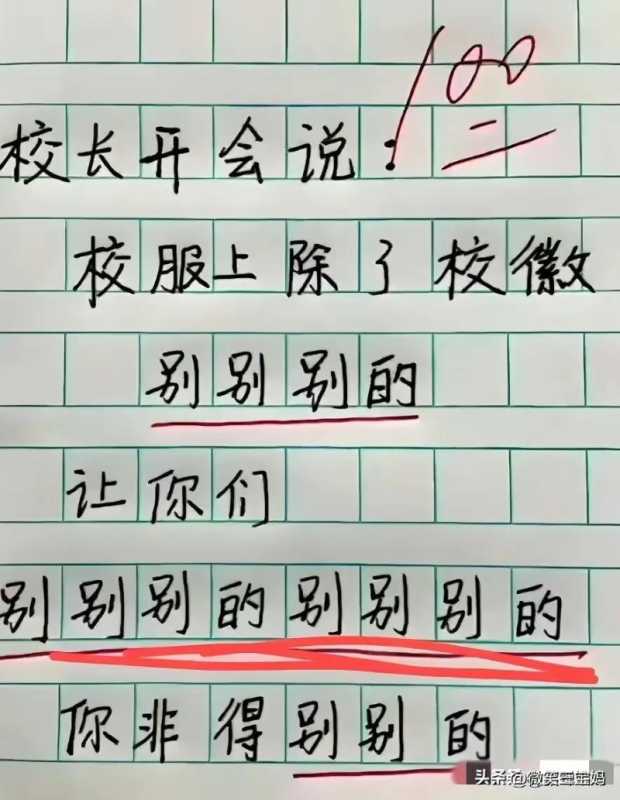 100
校长开会说:
校服上除了校徽
别别别的
让你们
别别别的别别别的
你非得别别的